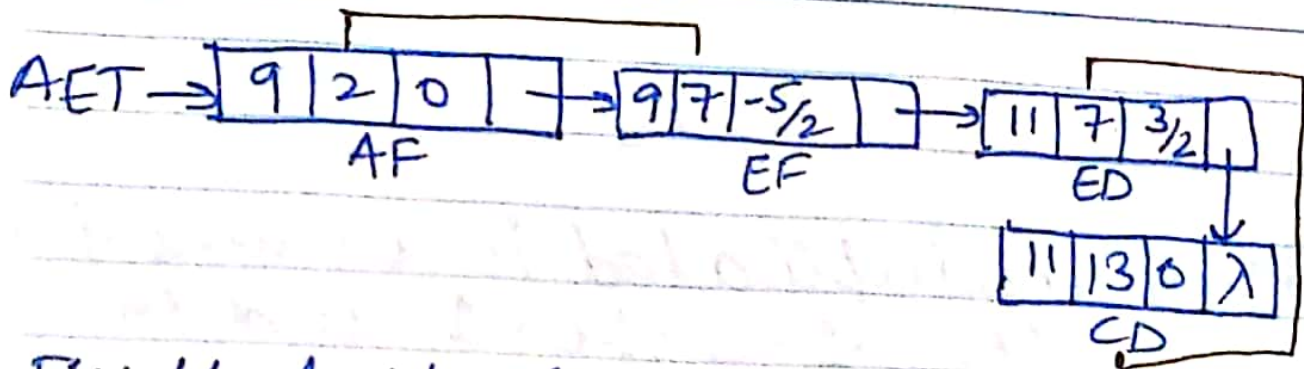 AET → 9 | 2 | 0 | → 9 | 7 | -5/2 | → 11 | 7 | 3/2 |
AF EF ED
11 | 13 | 0 | λ
CD